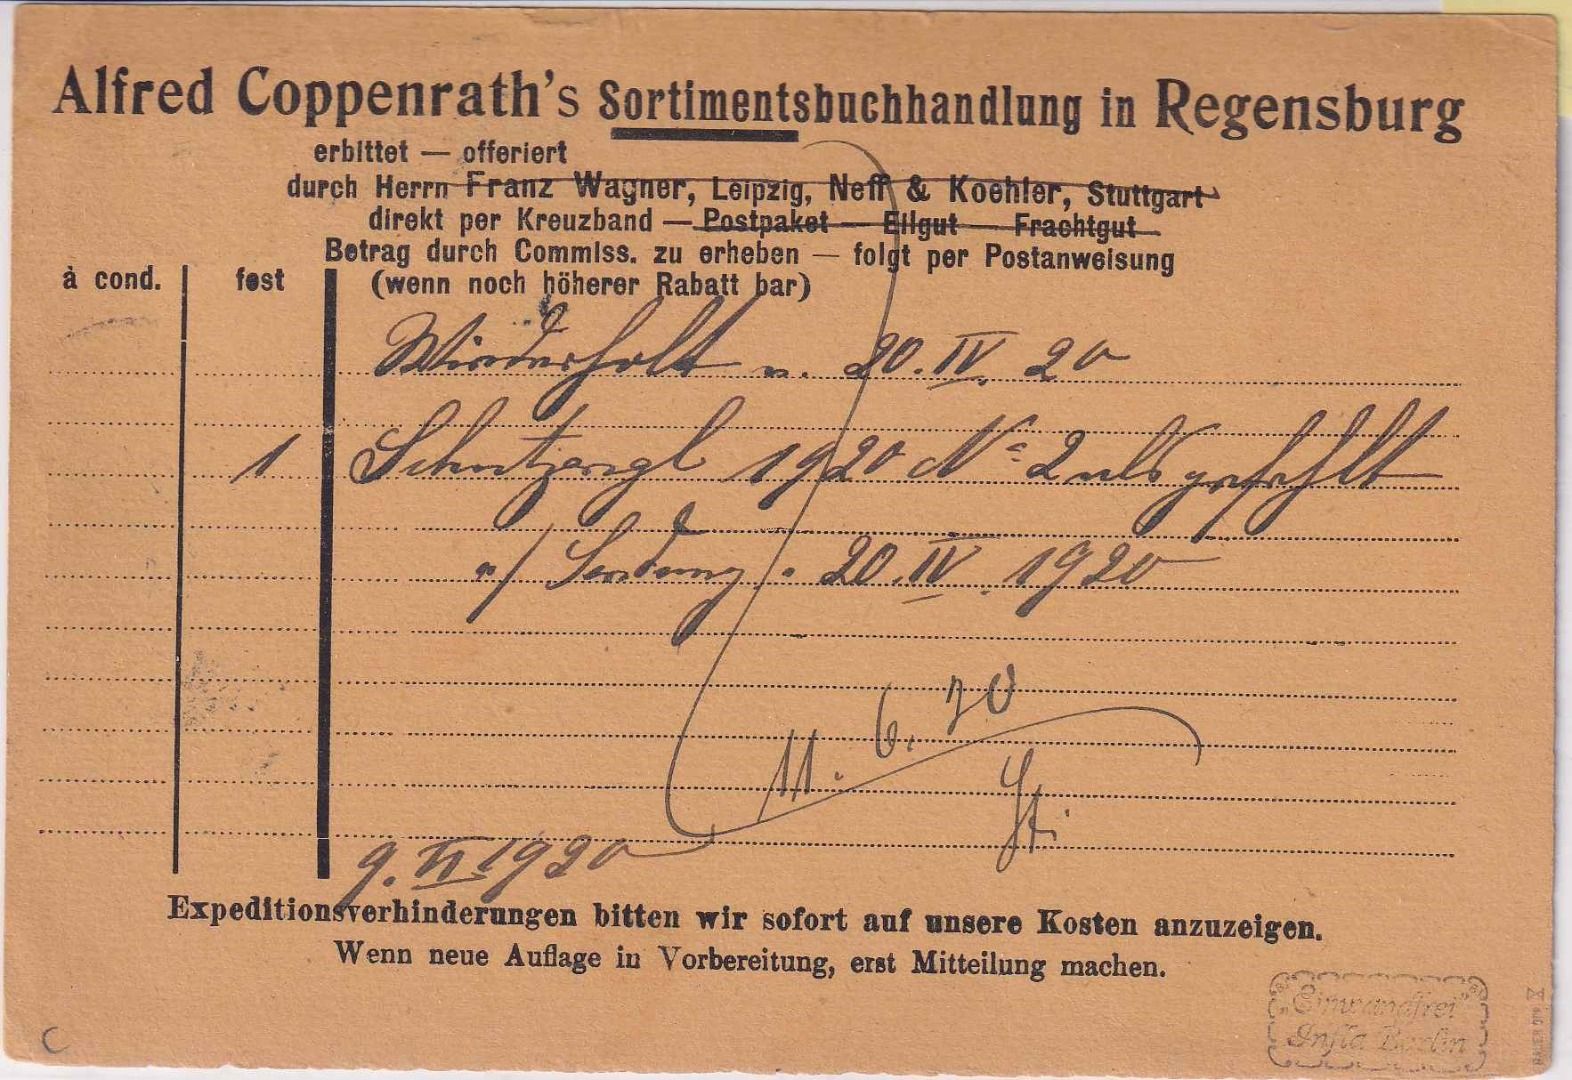 Alfred Coppenrath's Sortimentsbuchhandlung in Regensburg
erbittet — offeriert
durch Herrn Franz Wagner, Leipzig, Neff & Koehler, Stuttgart
direkt per Kreuzband — Postpaket — Eilgut — Frachtgut
Betrag durch Commiss. zu erheben — folgt per Postanweisung
à cond. fest (wenn noch höherer Rabatt bar)
Wiederholt v. 20. IV. 20
1 Schutzengl 1920 No 2 als gefehlt
a/ Sendung v. 20. IV. 1920
11. 6. 20
9. VI. 1920
Expeditionsverhinderungen bitten wir sofort auf unsere Kosten anzuzeigen.
Wenn neue Auflage in Vorbereitung, erst Mitteilung machen.
"Einwandfrei"
Infla Berlin
C